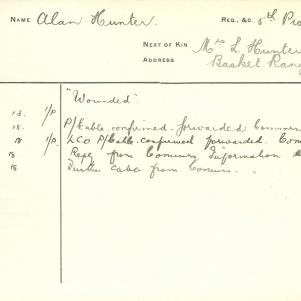 NAME Alan Hunter. REG., &C. 5th Pro
NEXT OF KIN Mrs L. Hunter
ADDRESS Basket Rang
"Wounded".
18. 1/P. P/Cable confirmed forwarded Commun
18 1/P. LCO P/Cable confirmed forwarded. Com
18 Reply from Commrs Information
18 Further Cable from Commrs.